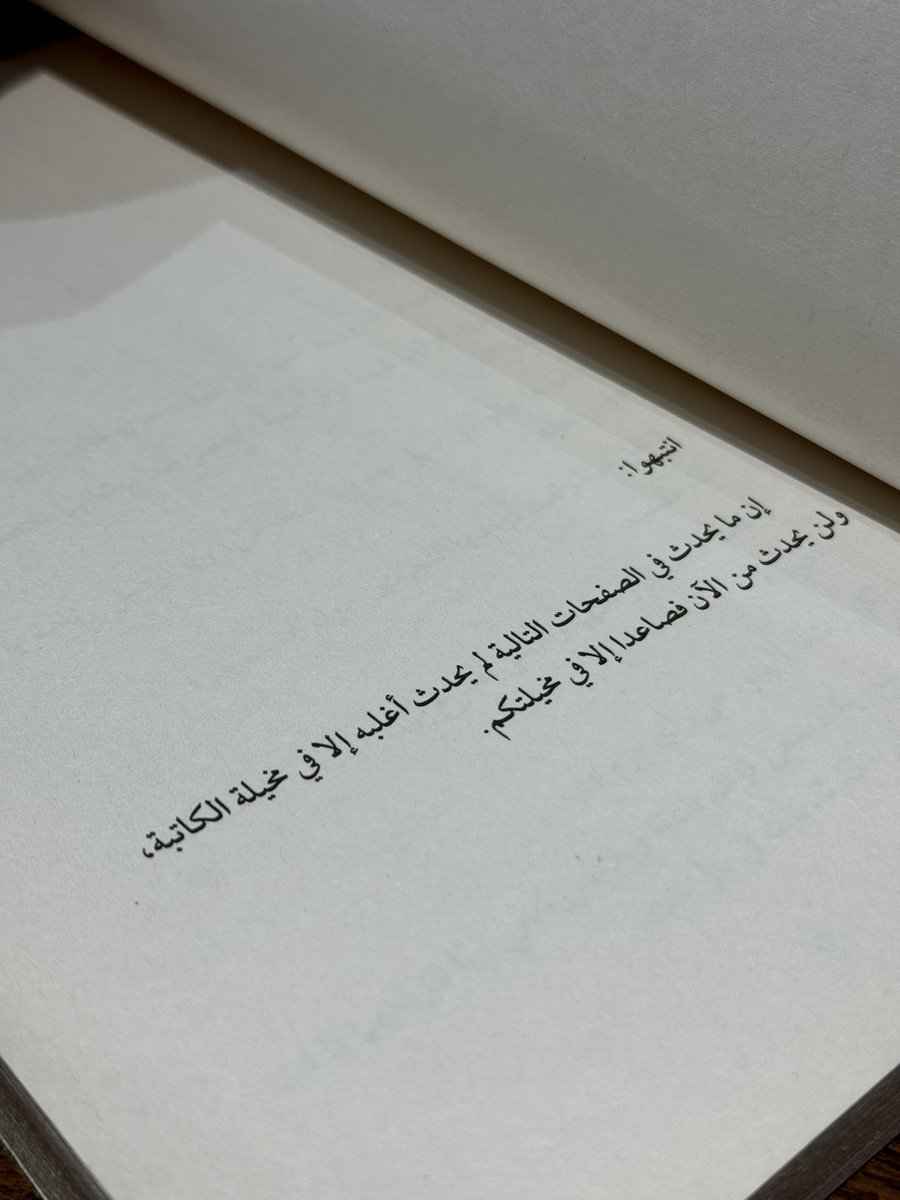 انتبهوا:
إن ما يحدث في الصفحات التالية لم يحدث أغلبه إلا في مخيلة الكاتبة،
ولن يحدث من الآن فصاعدا إلا في مخيلتكم.